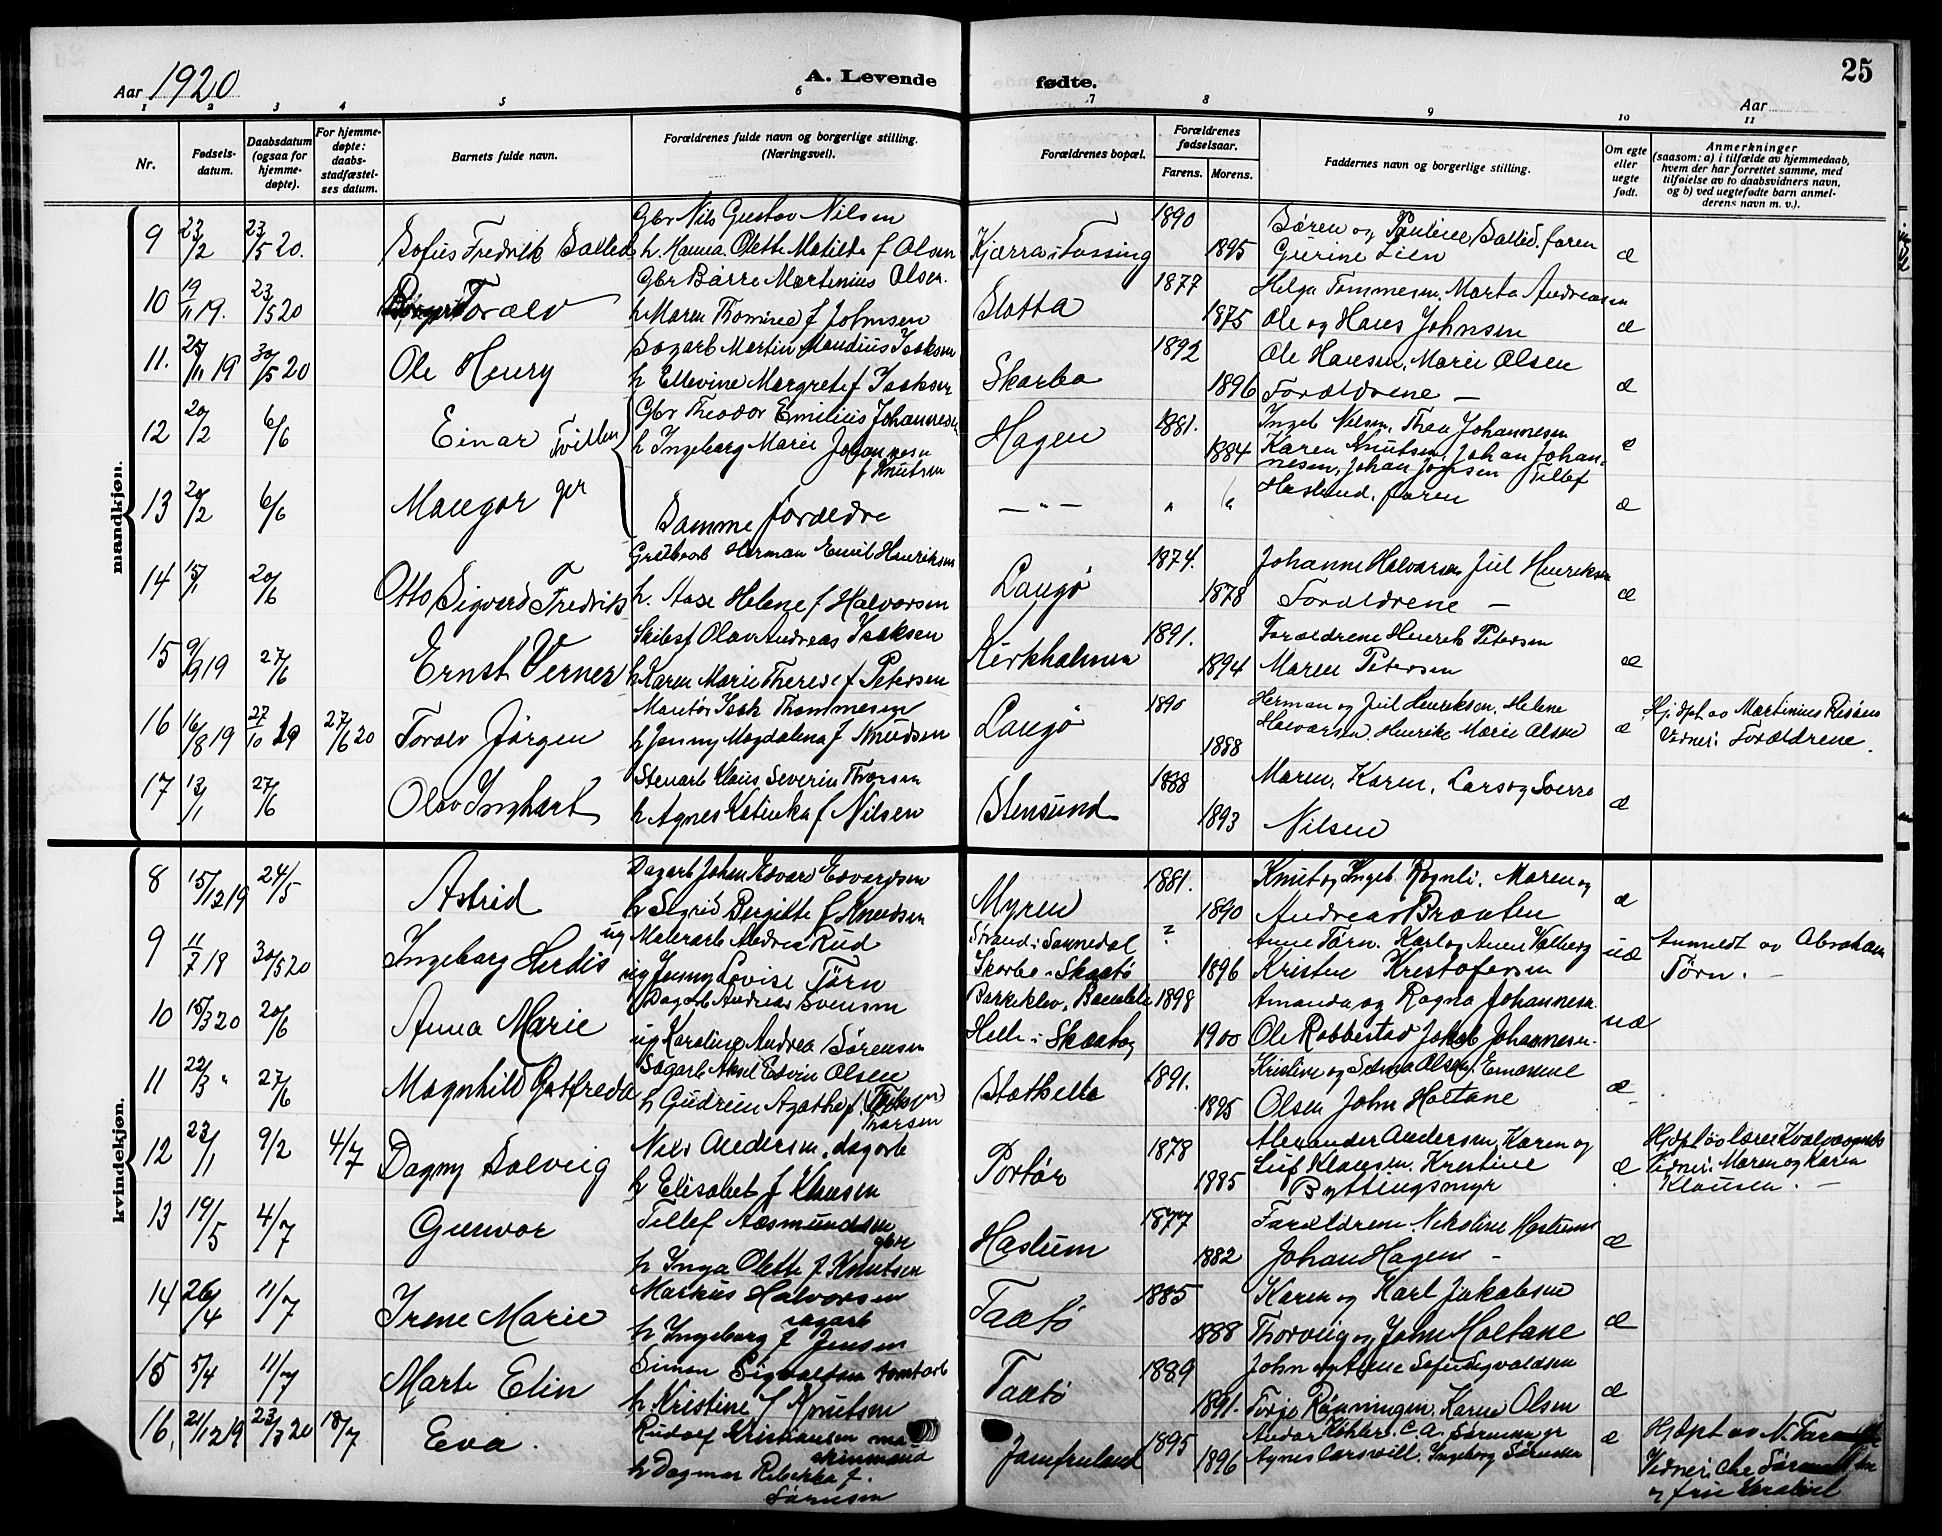 Aar 1920
A. Levende fødte.
Aar
25
1 2 3 4 5 6 7 8 9 10 11
Nr.
Fødsels-datum.
Daabsdatum (ogsaa for hjemme-døpte).
For hjemme-døpte: daabs-stadfæstel-ses datum.
Barnets fulde navn.
Forældrenes fulde navn og borgerlige stilling. (Næringsvei).
Forældrenes bopæl.
Forældrenes fødselsaar.
Farens. Morens.
Faddernes navn og borgerlige stilling.
Om egte eller uegte født.
Anmerkninger (saasom: a) i tilfælde av hjemmedaab, hvem der har forrettet samme, med tilføielse av to daabsvidners navn, og b) ved uegtefødte barn anmel-derens navn m. v.).
mandkjøn.
9 23/2 23/5 20. Sofus Fredrik
Gbr Nils Gustav Nilsen
h. Hanna Olette Matilde f Olsen
Kjærra i 1890 1895
Søren og Pauline faren
Gurine Lien æ
10 19/11 19. 23/5 20 Toralv
Gbr Børre Martinius Olsen
h Maren Thomine f Johnsen
Slotta 1877 1875
Helga Tommesen, Marta Andreasen
Ole og Hans Johnsen æ
11. 25/11 19 30/5 20 Ole Henry
Martin Isaksen
h Ellevine Margrete f Isaksen
Skarbo 1892 1896
Ole Hansen, Marie Olsen
Forældrene — æ
12 20/2 6/6 Einar Tvillin
Gbr Theodor Emilius Johannesen
h Ingeborg Marie Johannesen
f Knutsen
Hagen 1881. 1884
Ingeb Nilsen, Thea Johannesen
Karen Knutsen, Johan Johan-
nesen, Johan Jensen Tellef æ
13 20/2 6/6 Mangor ger
Samme forældre
— " — " "
Haslund, faren æ
14 15/1 20/6 Otto Sigverd Fredrik
Herman Emil Henriksen
h. Aase Helene f Halvorsen
Langø 1874. 1878
Johanne Halvorsen Jul Henriksen
Forældrene — æ
15 9/9 19 27/6 Ernst Verner
Olav Andreas Isaksen
h Karen Marie Therese f Petersen
Kirkholmen 1891. 1894
Forældrene Henrik Petersen
Maren Petersen æ
16 16/8 19 27/10 19 27/6 20 Toralv Jørgen
Isak Thommesen
h Jenny Magdalena f Knudsen
Langø 1890 1888
Herman og Jul Henriksen, Helene
Halvorsen, Henrike Marie Olsen æ
Hj. døpt av Martinius Risøen
Vidner: Forældrene.
17 13/1 27/6 Olav Inghart
Stenarb Klaus Severin Thorsen
h Agnes Katinka f Nilsen
Stensund 1888 1893
Maren, Karen, Lars og Sverre
Nilsen æ
kvindekjøn.
8 15/12 19 24/5 Astrid
Dagarb Johan Edvard Edvardsen
h Sigrid Bergitte f Knudsen
Myren 1881. 1890
Knut og Ingeb. Rognli, Maren og
Andreas Braaten æ
9 11/7 18 30/5 20 Ingeborg Herdis
ug Malerarb Andrea Rud
ug Jenny Lovise Törn
Strand i Sannedal ?
Skarbo i Skaatø 1896
Anne Törn, Karl og Anne Valberg
Kristen Kristofersen uæ
Anmeldt av Abraham
Törn. —
10 15/3 20 20/6 Anna Marie
Dagarb Andreas Svensen
ug Karoline Andrea Sørensen
Barkeklev, Bamble 1898
Helle i Skaatø 1900
Amanda og Ragna Johannesen
Ole Robberstad Jakob Johannesen uæ
11 22/3 " 27/6 Magnhild Gotfreda
Sagarb Aksel Edvin Olsen
h Gudrun Agathe f.
Larsen
Stathelle 1891. 1895
Kristine og Selma Olsen, Emanuel
Olsen John Holtane æ
12 23/1 9/2 4/7 Dagny Solveig
Nils Andersen, dagarb
h Elisabet f Klausen
Portør 1878 1885
Alexander Andersen, Karen og
Leif Klausen, Kristine
Byttingsmyr æ
Hj døpt av lærer Kvalvaagnes
Vidner: Maren og Karen
Klausen. —
13 19/5 4/7 Gunvor
Tellef Aasmundsen
gbr
h Inga Olette f Knutsen
Haslum 1877 1882
Forældrene Nikoline Haslum
Johan Hagen — æ
14 26/4 11/7 Irene Marie
Markus Halvorsen
sagarb
h Ingeborg f Jensen
Taatø 1885 1888
Karen og Karl Jakobsen
Thorveig og John Holtane æ
15 5/4 11/7 Marte Elin
Simon Sigvaldsen tomtarb
h. Kristine f Knutsen
Taatø 1889 1891.
John og Anne Sofie Sigvaldsen
Torjo Rønningen, Karen Olsen æ
16. 21/12 19 23/3 20 18/7 Eva.
Rudolf Kristiansen ma-
skinmand
h Dagmar Rebekka f.
Sørensen
Jomfruland 1895 1896
Andor Køhler, C. A. Sørensen
Agnes Ingeborg Sørensen æ
Hj døpt av N.
Vidner:
og fru